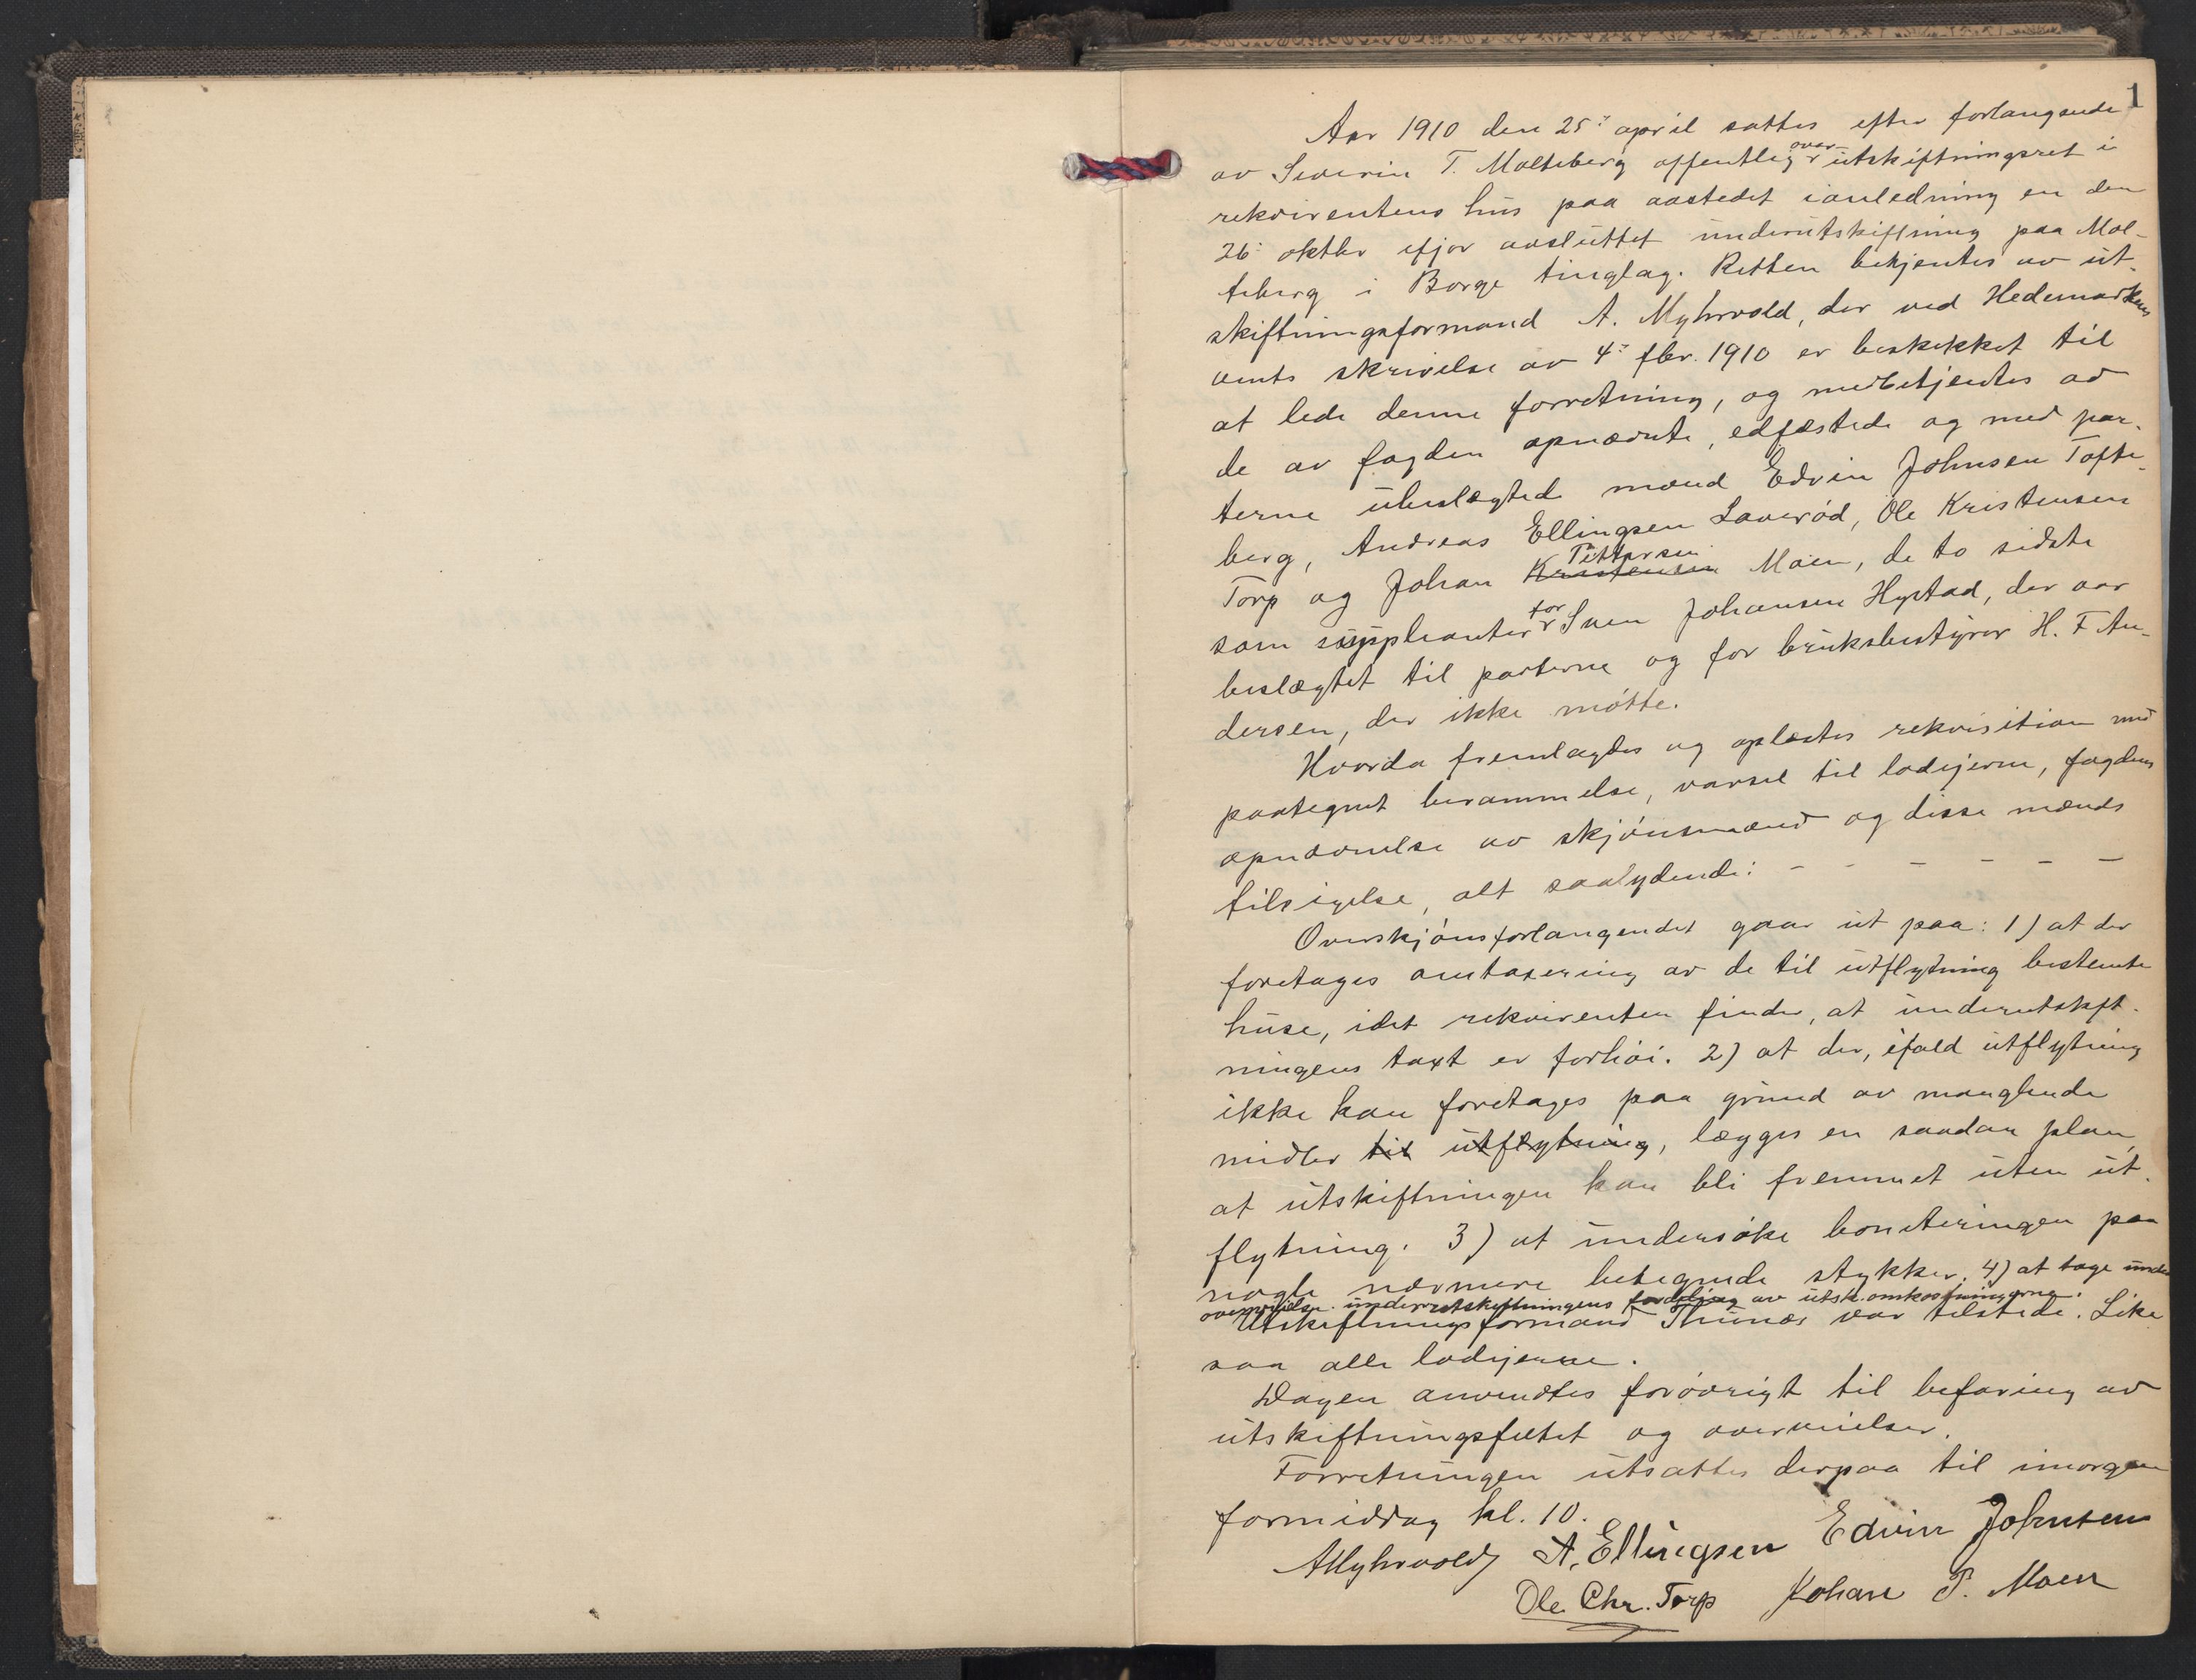 1
Aar 1910 den 25: april sattes efter forlangende
av Severin T. Molteberg offentleg over utskiftningsret i
rekvirentens hus paa aastedet ianledning en den
26: oktbr ifjor avsluttet underutskiftning paa Mol-
teberg i Borge tinglag. Retten betjentes av ut-
skiftningsformand A. Myhrvold, der ved Hedemarkens
amts skrivelse av 4: fbr. 1910 er beskikket til
at lede denne forretning, og medbetjentes av
de av fogden opnævnte, edfæstede og med par-
terne ubeslægtede mænd Edvin Johnsen Tofte-
berg, Andreas Ellingsen Laverød, Ole Kristensen
Torp og Johan Kristensen Pettersen Moen, de to sidste
som suppleanter for Sven Johansen Hystad, der var
beslægtet til parterne og for bruksbestyrer H. F. An-
dersen, der ikke møtte.
Hvorda fremlagdes og oplæstes rekvisition med
paategnet berammelse, varsel til lodeierne, fogdens
opnævnelse av skjønsmænd og disse mænds
tilsigelse, alt saalydende: - - - - - -
Overskjønsforlangendet gaar ut paa: 1) at der
foretages omtaxering av de til utflytning bestemte
huse, idet rekvirenten finder, at underutskift-
ningens taxt er forhøi. 2) at der, ifald utflytning
ikke kan foretages paa grund av manglende
midler til utflytning, lægges en saadan plan,
at utskiftningen kan bli fremmet uten ut-
flytning. 3) at undersøke boniteringen paa
nogle nærmere betegnede stykker. 4) at tage under
overveielse underutskiftningens fordeling av utsk.omkostningerne.
Utskiftningsformand Thunæs var tilstede. Like
saa alle lodeierne.
Dagen anvendtes forøvrigt til befaring av
utskiftningsfeltet og overveielser.
Forretningen utsattes derpaa til imorgen
formiddag kl. 10.
AMyhrvold A. Ellingsen Edvin Johnsen
Ole Chr. Torp Johan P. Moen